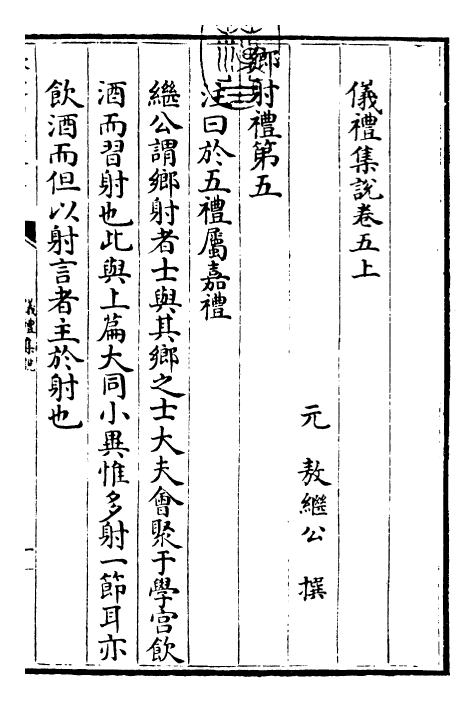 儀禮集說卷五上
元 敖繼公 撰
鄉射禮第五
注曰於五禮屬嘉禮
繼公謂鄉射者士與其鄉之士大夫會聚于學宫飲
酒而習射也此與上篇大同小異惟多射一節耳亦
飲酒而但以射言者主於射也
儀禮集說
一